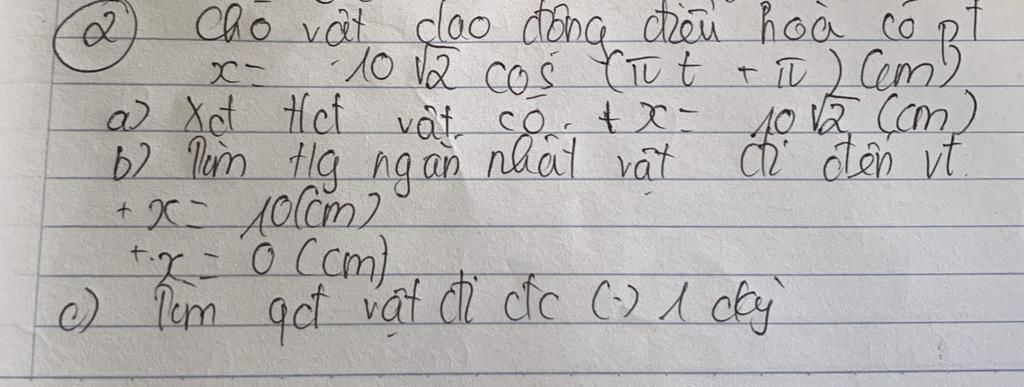 ② Cho vật dao động điều hoà có pt
x = 10√2 cos (πt + π) (cm)
a) Xđ tđ vật có + x = 10√2 (cm)
b) Tìm tg ngắn nhất vật đi đến vt
+ x = 10(cm)
+ x = 0 (cm)
c) Tìm qđ vật đi đc (·) 1 ckỳ